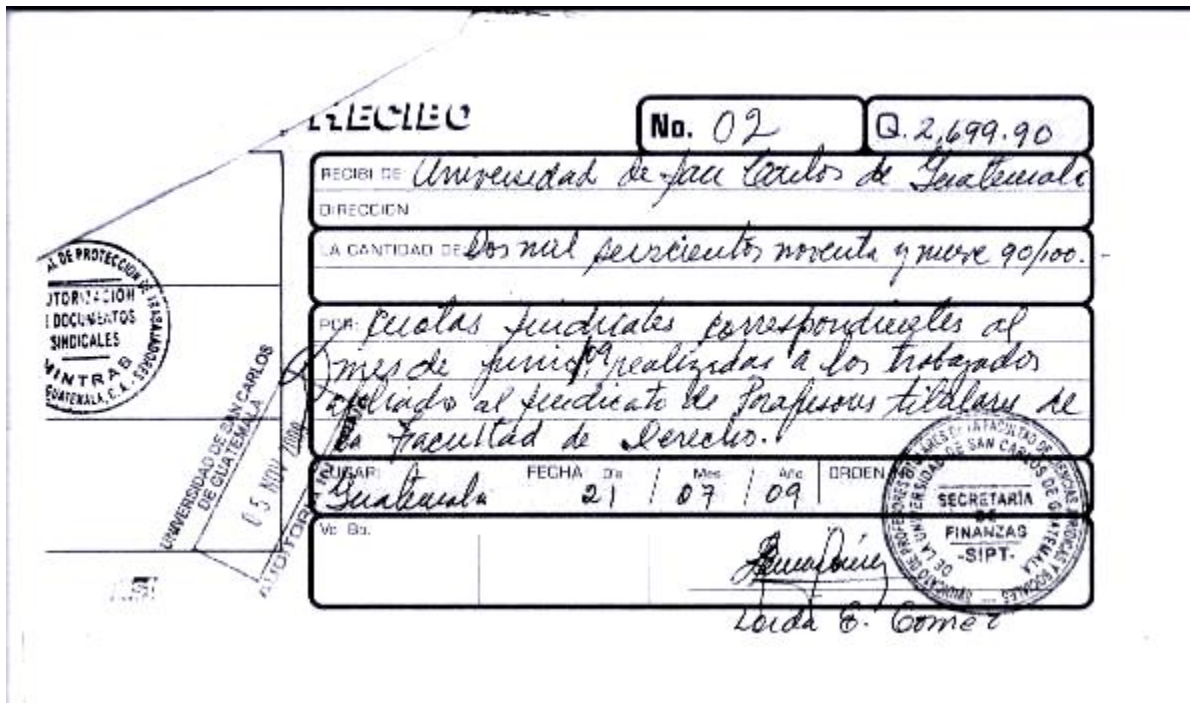 RECIBO
No. 02
Q. 2,699.90
RECIBI DE: Universidad de San Carlos de Guatemala
DIRECCION
LA CANTIDAD DE: Dos mil seiscientos noventa y nueve 90/100.-
POR: Cuotas sindicales correspondientes al
mes de junio 09 realizadas a los trabajados
afiliado al sindicato de Profesores titulares de
la Facultad de Derecho.
LUGAR: Guatemala
FECHA Día 21 / Mes 07 / Año 09
ORDEN
Vo. Bo.
Loida E. Gomez
AL DE PROTECCION DE TRABAJADORES
UTORIZACION
E DOCUMENTOS
SINDICALES
MINTRAB
GUATEMALA, C.A.
UNIVERSIDAD DE SAN CARLOS
DE GUATEMALA
05 NOV
SINDICATO DE PROFESORES TITULARES DE LA FACULTAD DE CIENCIAS JURIDICAS Y SOCIALES
DE LA UNIVERSIDAD DE SAN CARLOS DE GUATEMALA
SECRETARIA
DE
FINANZAS
-SIPT-